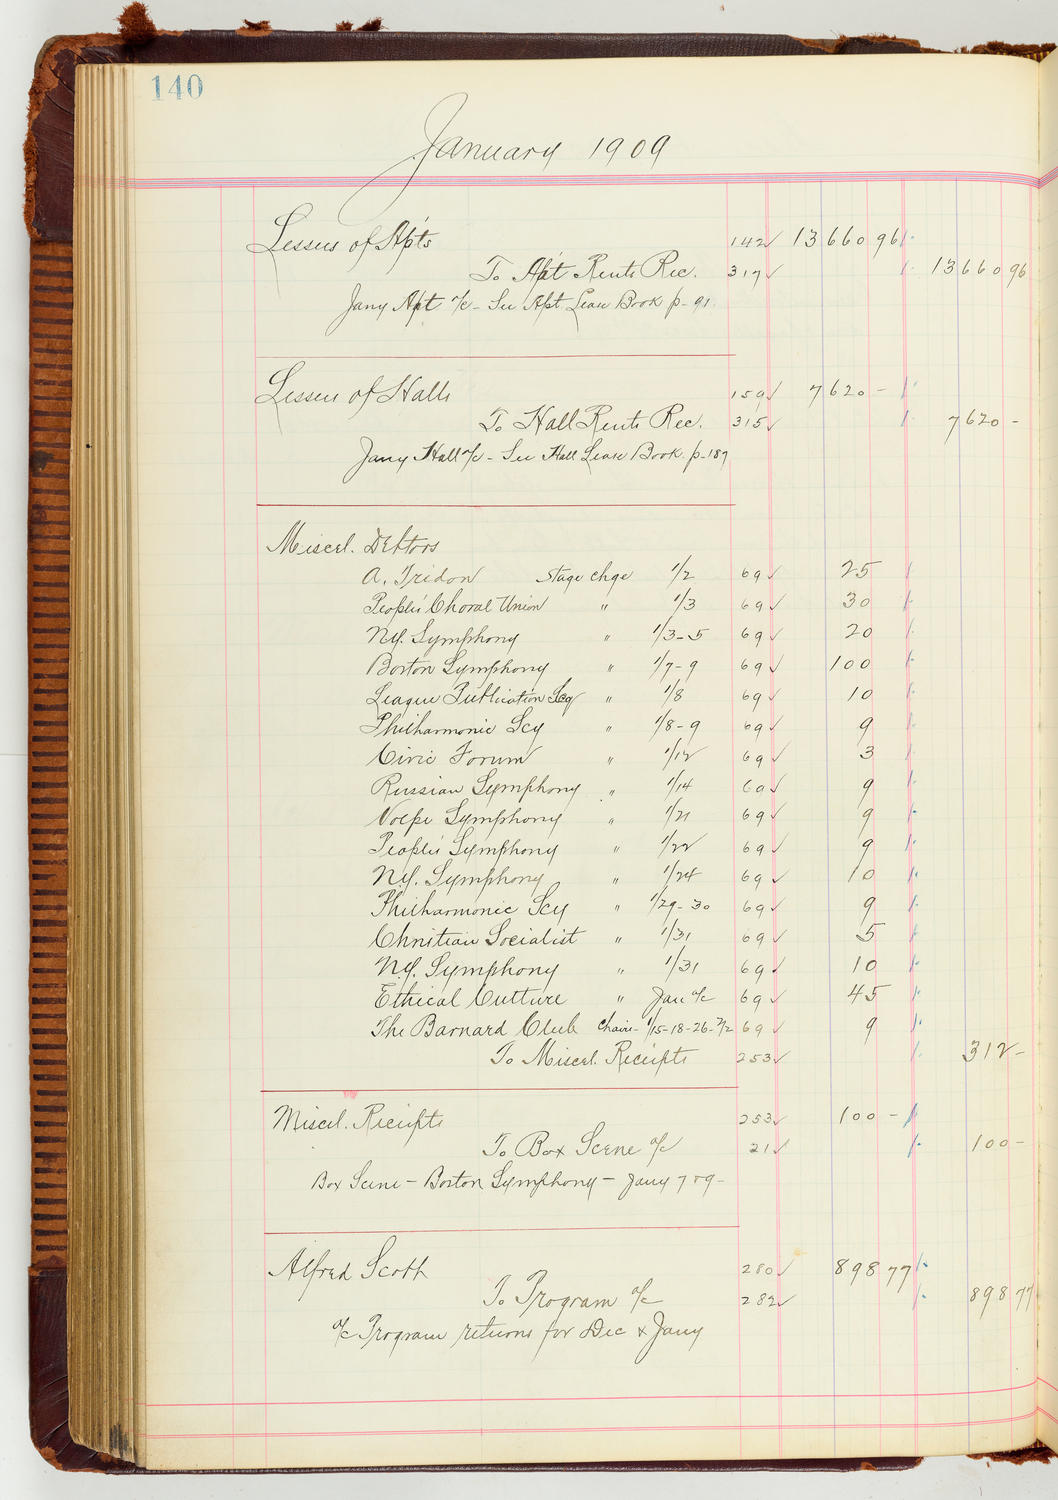 140
January 1909
Lessees of Apts 142 ✓ 13660 96
To Apt Rents Rec. 317 ✓ 13660 96
Jany Apt a/c - See Apt Lease Book p- 91
Lessees of Halls 159 ✓ 7620 -
To Hall Rents Rec. 315 ✓ 7620 -
Jany Hall a/c - See Hall Lease Book p-187
Miscel. Debtors
A. Tridon Stage chge 1/2 69 ✓ 25
People's Choral Union " 1/3 69 ✓ 30
N.Y. Symphony " 1/3-5 69 ✓ 20
Boston Symphony " 1/7-9 69 ✓ 100
League Publication Scy " 1/8 69 ✓ 10
Philharmonic Scy " 1/8-9 69 ✓ 9
Civic Forum " 1/12 69 ✓ 3
Russian Symphony " 1/14 69 ✓ 9
Volpe Symphony " 1/21 69 ✓ 9
People's Symphony " 1/22 69 ✓ 9
N.Y. Symphony " 1/24 69 ✓ 10
Philharmonic Scy " 1/29-30 69 ✓ 9
Christian Socialist " 1/31 69 ✓ 5
N.Y. Symphony " 1/31 69 ✓ 10
Ethical Culture " Jan a/c 69 ✓ 45
The Barnard Club Chairs- 1/15-18-26-2/2 69 ✓ 9
To Miscel. Receipts 253 ✓ 312 -
Miscel. Receipts 253 ✓ 100 -
To Box Scene a/c 21 ✓ 100 -
Box Scene - Boston Symphony - Jany 7 & 9 -
Alfred Scott 280 ✓ 898 77
To Program a/c 282 ✓ 898 77
a/c Program returns for Dec & Jany